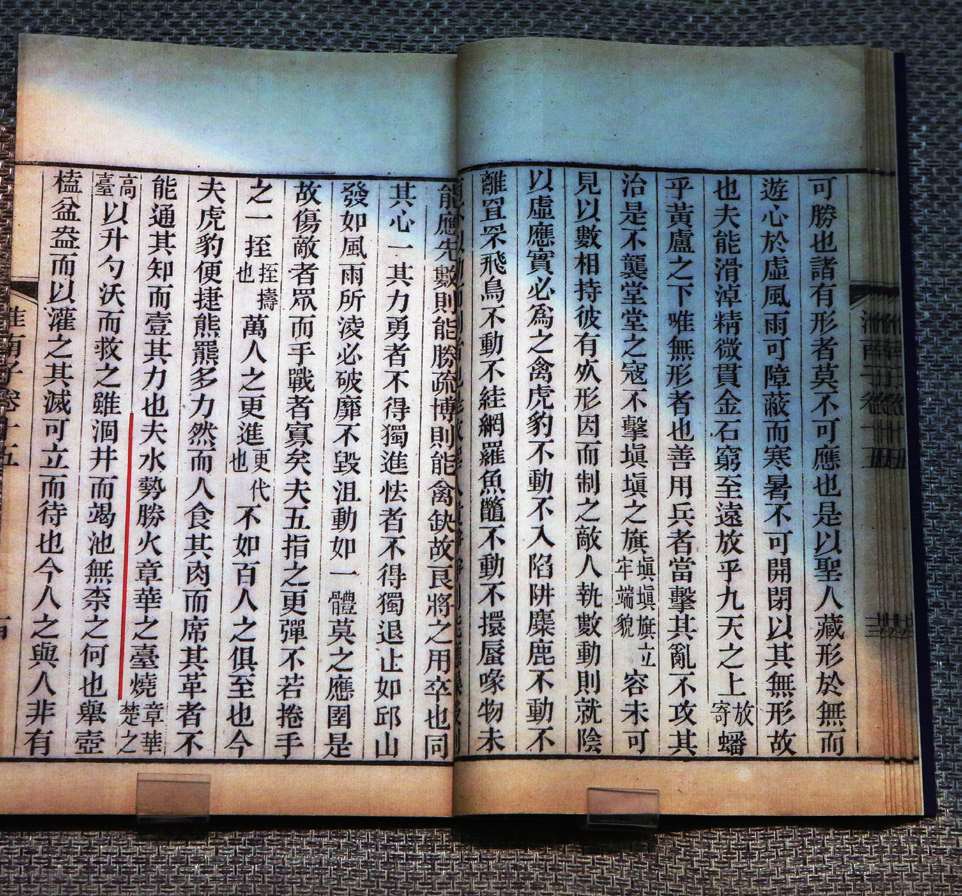 可勝也諸有形者莫不可應也是以聖人藏形於無而
遊心於虛風雨可障蔽而寒暑不可開閉以其無形故
也夫能滑淖精微貫金石窮至遠放乎九天之上放寄蟠
乎黃盧之下唯無形者也善用兵者當擊其亂不攻其
治是不襲堂堂之寇不擊塡塡之旗塡塡旗立牢端貌容未可
見以數相持彼有死形因而制之敵人執數動則就陰
以虛應實必為之禽虎豹不動不入陷阱麋鹿不動不
離罝罘飛鳥不動不絓網羅魚鼈不動不擐脣喙物未
能應先數則能勝疏博則能禽缺故良將之用卒也同
其心一其力勇者不得獨進怯者不得獨退止如邱山
發如風雨所淩必破靡不毀沮動如一體莫之應圉是
故傷敵者眾而手戰者寡矣夫五指之更彈不若捲手
之一挃挃擣也萬人之更進更代也不如百人之俱至也今
夫虎豹便捷熊羆多力然而人食其肉而席其革者不
能通其知而壹其力也夫水勢勝火章華之臺燒章華楚之
高臺以升勺沃而救之雖涸井而竭池無柰之何也舉壺
榼盆盎而以灌之其滅可立而待也今人之與人非有
淮南子卷十五